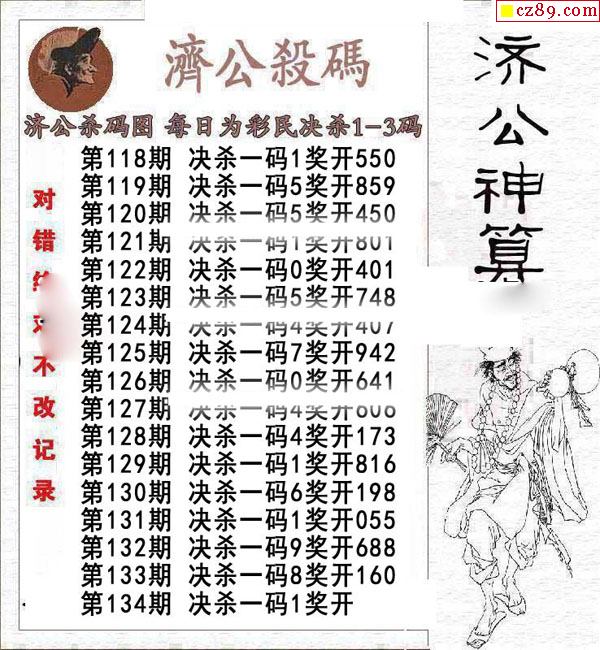 cz89.com
濟公殺碼
济公杀码图 每日为彩民决杀1-3码
第118期 决杀一码1奖开550
第119期 决杀一码5奖开859
第120期 决杀一码5奖开450
第121期 决杀一码1奖开801
第122期 决杀一码0奖开401
第123期 决杀一码5奖开748
第124期 决杀一码4奖开407
第125期 决杀一码7奖开942
第126期 决杀一码0奖开641
第127期 决杀一码4奖开606
第128期 决杀一码4奖开173
第129期 决杀一码1奖开816
第130期 决杀一码6奖开198
第131期 决杀一码1奖开055
第132期 决杀一码9奖开688
第133期 决杀一码8奖开160
第134期 决杀一码1奖开
对错不改记录
济公神算